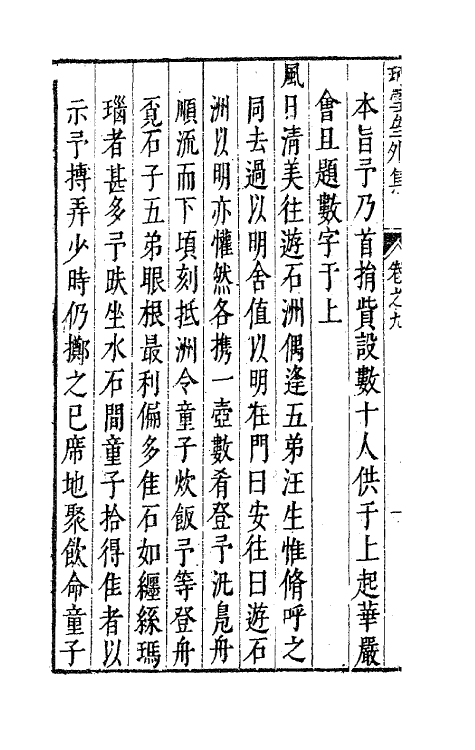 珂雪先外集
卷之九
本旨予乃首捐貲設數十人供于上起華嚴
會且題數字于上
風日清美往遊石洲偶逢五弟汪生惟脩呼之
同去過以明舍值以明在門曰安往曰遊石
洲以明亦懽然各携一壺數肴登予汎鳧舟
順流而下頃刻抵洲令童子炊飯予等登舟
覓石子五弟眼根最利偏多佳石如纏絲瑪
瑙者甚多予趺坐水石間童子拾得佳者以
示予摶弄少時仍擲之已席地聚飲命童子